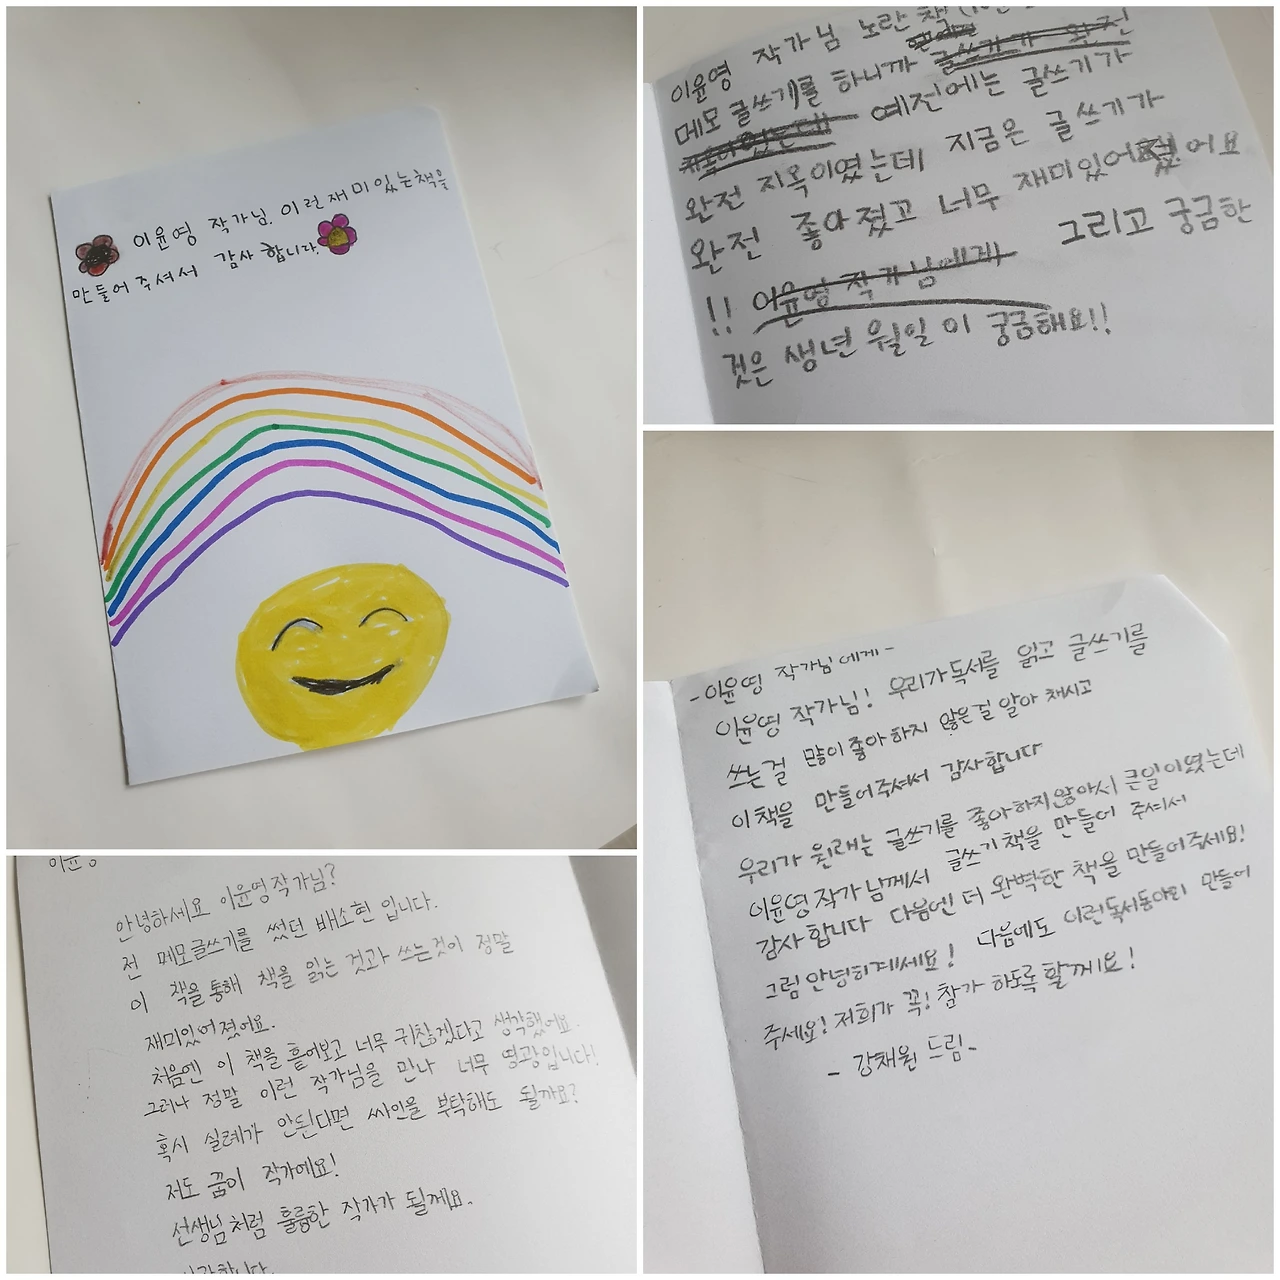 이윤영 작가님. 이런 재미있는 책을
만들어 주셔서 감사 합니다.
이윤영 작가님 노란 책
메모 글쓰기를 하니까 글쓰기가 완전
예전에는 글쓰기가
완전 지옥이였는데 지금은 글쓰기가
완전 좋아졌고 너무 재미있어졌어요
!! 이윤영 작가님에게 그리고 궁금한
것은 생년 월일이 궁금해요!!
안녕하세요 이윤영작가님?
전 메모글쓰기를 썼던 배소현입니다.
이 책을 통해 책을 읽는 것과 쓰는것이 정말
재미있어졌어요.
처음엔 이 책을 흝어보고 너무 귀찮겠다고 생각했어요.
그러나 정말 이런 작가님을 만나 너무 영광입니다!
혹시 실례가 안된다면 싸인을 부탁해도 될까요?
저도 꿈이 작가에요!
선생님처럼 훌륭한 작가가 될께요.
-이윤영 작가님에게-
이윤영 작가님! 우리가 독서를 읽고 글쓰기를
쓰는걸 많이 좋아하지 않은걸 알아 채시고
이 책을 만들어주셔서 감사합니다
우리가 원래는 글쓰기를 좋아하지않아서 큰일이였는데
이윤영작가님께서 글쓰기 책을 만들어 주셔서
감사합니다 다음엔 더 완벽한 책을 만들어주세요!
그럼 안녕히계세요! 다음에도 이런독서동아리 만들어
주세요! 저희가 꼭! 참가 하도록 할께요!
- 강채원 드림-